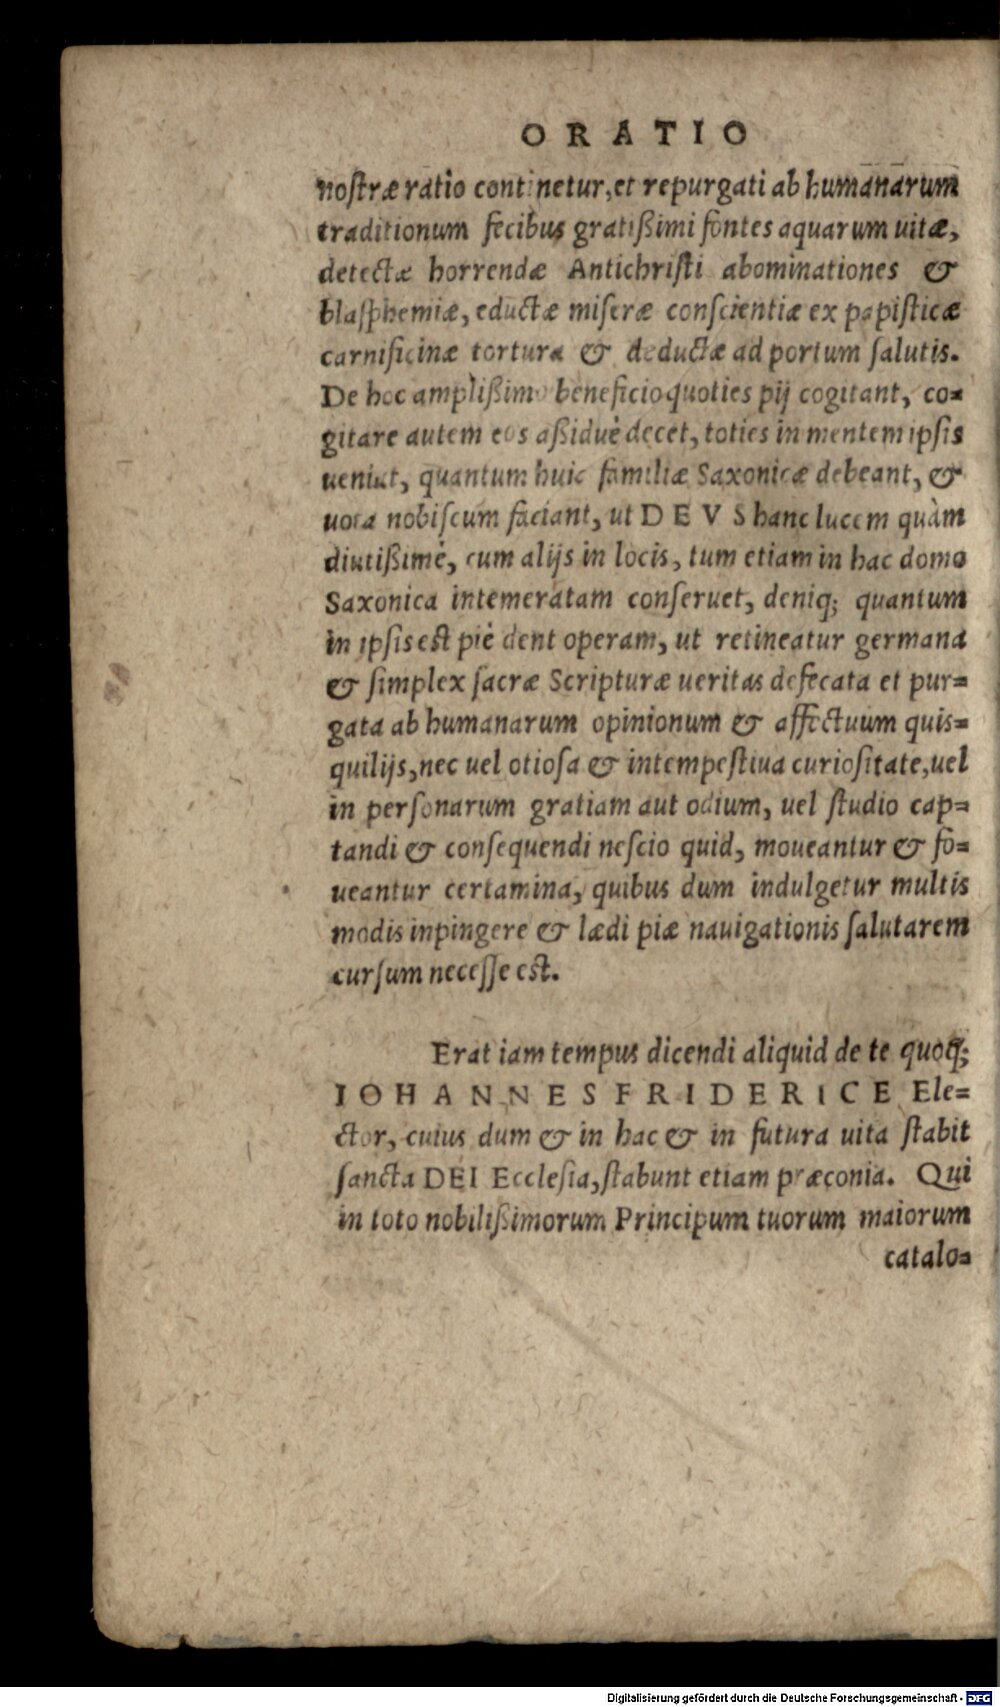 ORATIO
nostræ ratio continetur, et repurgati ab humanarum
traditionum fecibus gratißimi fontes aquarum uitæ,
detectæ horrendæ Antichristi abominationes &
blasphemiæ, eductæ miseræ conscientiæ ex papisticæ
carnificinæ tortura & deductæ ad portum salutis.
De hoc amplißimo beneficio quoties pij cogitant, co=
gitare autem eos aßiduè decet, toties in mentem ipsis
ueniat, quantum huic familiæ Saxonicæ debeant, &
uota nobiscum faciant, ut DEVS hanc lucem quàm
diutißimè, cum alijs in locis, tum etiam in hac domo
Saxonica intemeratam conseruet, deniq; quantum
in ipsis est piè dent operam, ut retineatur germana
& simplex sacræ Scripturæ ueritas defecata et pur=
gata ab humanarum opinionum & affectuum quis=
quilijs, nec uel otiosa & intempestiua curiositate, uel
in personarum gratiam aut odium, uel studio cap=
tandi & consequendi nescio quid, moueantur & fo=
ueantur certamina, quibus dum indulgetur multis
modis inpingere & lædi piæ nauigationis salutarem
cursum necesse est.
Erat iam tempus dicendi aliquid de te quoq;
IOHANNES FRIDERICE Ele=
ctor, cuius dum & in hac & in futura uita stabit
sancta DEI Ecclesia, stabunt etiam præconia. Qui
in toto nobilißimorum Principum tuorum maiorum
catalo=
Digitalisierung gefördert durch die Deutsche Forschungsgemeinschaft - DFG